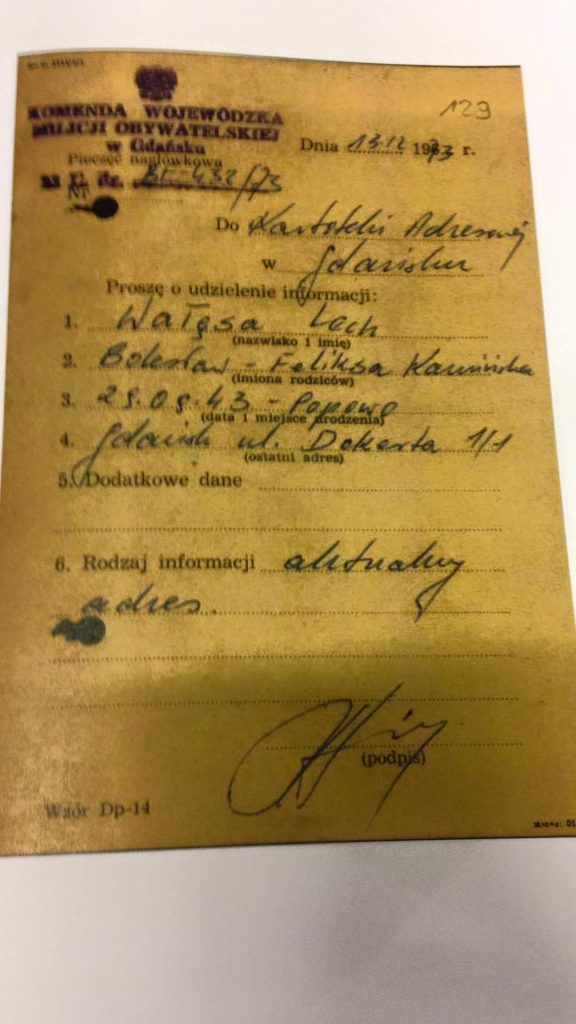 129
KOMENDA WOJEWÓDZKA
MILICJI OBYWATELSKIEJ
w Gdańsku
Pieczęć nagłówkowa
Dnia 13.12 1973 r.
Nr 432/73
Do Kartoteki Adresowej
w Gdańsku
Proszę o udzielenie informacji:
1. Wałęsa Lech
(nazwisko i imię)
2. Bolesław - Feliksa Kamińska
(imiona rodziców)
3. 29.09.43 - Popowo
(data i miejsce urodzenia)
4. Gdańsk ul. Dokerta 1/1
(ostatni adres)
5. Dodatkowe dane
6. Rodzaj informacji aktualny
adres.
(podpis)
Wzór Dp-14